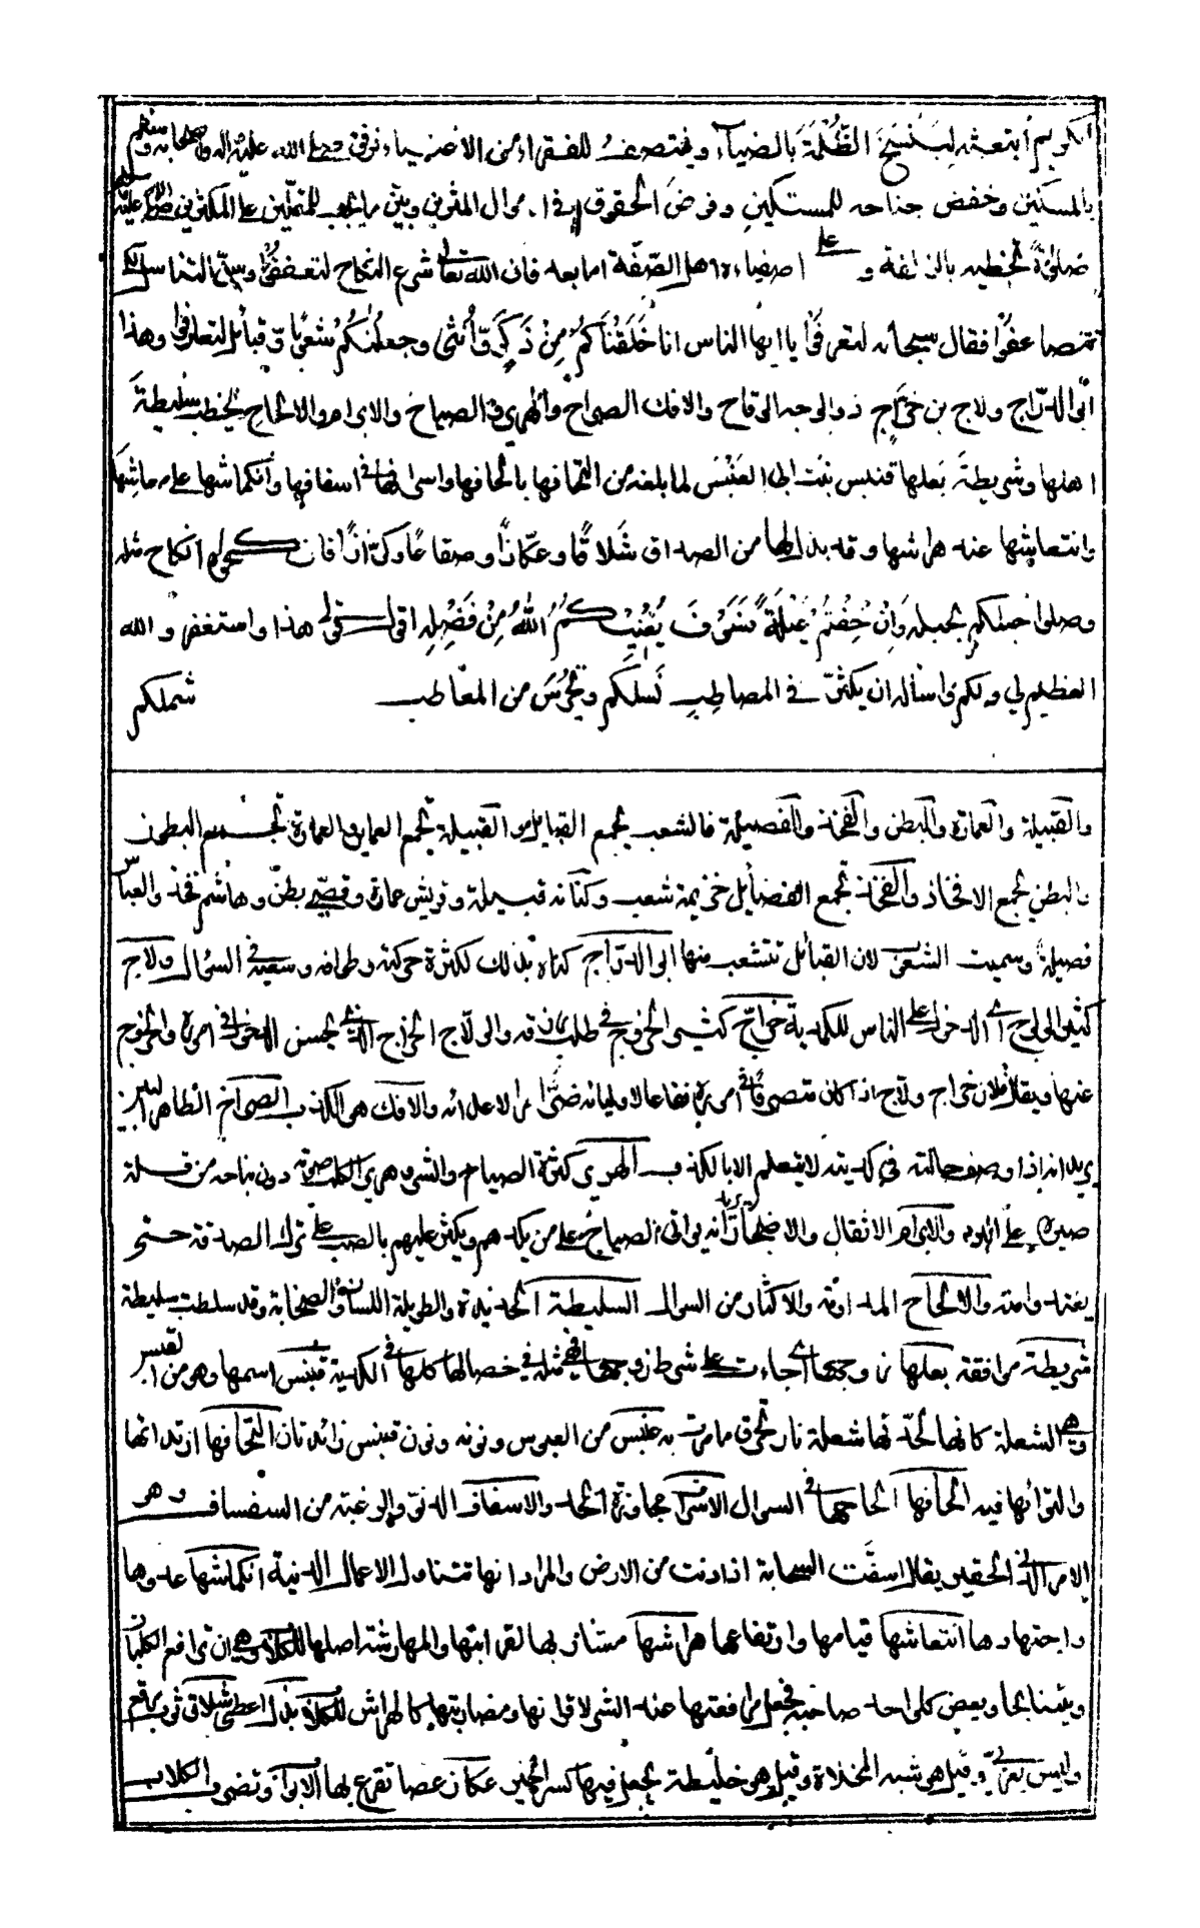 الكريم أبتعثه لينسخ الظلمة بالضياء وينتصف للفقراء من الاغنياء فرفق صلى الله عليه واله واصحابه وسلم
بالمسكين وخفض جناحه للمستكين وفرض الحقوق في اموال المثرين وبين ما يجب للمقلين على المكثرين صلى الله عليه
صلوة تحظيه بالزلفة وعلى اصفياءه اهل الصفة اما بعد فان الله تعالى شرع النكاح لتعففوا وسن التناسل لكي
تتضاعفوا فقال سبحانه لتعرفوا يا ايها الناس انا خلقناكم من ذكر وأنثى وجعلناكم شعوبا وقبائل لتعارفوا وهذا
أبو الدراج ولاج بن خراج ذو الوجه الوقاح والافك الصراح والهرير والصياح والابرام والالحاح يخطب سليطة
اهلها وشريطة بعلها قنبس بنت ابي العنبس لما بلغه من التحافها بالحافها واسرافها في اسفافها وانكماشها على معاشها
وانتعاشها عند هراشها وقد بذل لها من الصداق شلاقا وعكازا وصقاعا وكرازا فانكحوه انكاح مثله
وصلوا حبلكم بحبله وان خفتم عيلة فسوف يغنيكم الله من فضله اقول قولي هذا واستغفر الله
العظيم لي ولكم واسأله ان يكثر في المصاطب نسلكم ويحرس من المعاطب شملكم
والقبيلة والعمارة والبطن والفخذ والفصيلة فالشعب يجمع القبايل والقبيلة تجمع العماير والعمارة تجمع البطون
والبطن يجمع الافخاذ والفخذ تجمع الفصايل خزيمة شعب وكنانه قبيلة وقريش عمارة وقصي بطن وهاشم فخذ والعباس
فصيلة وسميت الشعوب لان القبائل تتشعب منها ابو الدراج كناه بذلك لكثرة حركته وطوافه وسعيه في السؤال ولاج
كثير الولوج اي الدخول على الناس للكدية خراج كثير الخروج في طلب
عنها ويقال فلان خراج ولاج اذا كان متصرفا في اموره نفاعا لاوليائه ضرارا لاعدائه والافك هو الكذب الصراح الظاهر البين
يريد انه اذا وصف حالته في كديته لا يتعلم الا بالكذب الهرير كثرة الصياح والشر وهرير الكلب صوته دون نباحه من قلة
صبره على البرد والابرام الاثقال والاضجار يريد انه يوالي الصياح على من يكديهم ويكثر عليهم بالصبر على ترك الصدقة حتى
يغتدوا منه والالحاح المداومة والاكثار من السوال السليطة الحديدة والطويلة اللسان والصخابة وقد سلطت سليطة
شريطة موافقة بعلها زوجها اي جاءت على شرط زوجها فهي مثله في خصالها كلها في الكدية قنبس اسمها وهو من القبس
وهي الشعلة كانها لحدتها شعلة نار تحرق ما مرت به عنبس من العبوس ونونه ونون قنبس زائدتان التحافها ارتدائها
والتوائها فيه الحافها الحاحها في السوال الاسراف مجاوزة الحد والاسفاف الدنو والرغبة من السفساف وهو
الامر الدني الحقير يقال اسفت السحابة اذا دنت من الارض والمراد انها تتناول الاعمال الدنية انكماشها عدوها
واجتهادها انتعاشها قيامها وارتفاعها هراشها مشارتها لقرابتها والمهارشة اصلها للكلاب وهي ان ترافع الكلبان
ويتنابحا ويعض كل احد صاحبه فجعل مرافعتها عند الشر لاقرانها ومضاربتها كالهراش للكلاب بذل اعطى شلاق ثوب مرقع
وليس بعربي وقيل هو شبه المخلاة وقيل هو خليطة يجعل فيها كسر الخبز عكاز عصا تقرع بها الابواب وتضرب الكلاب